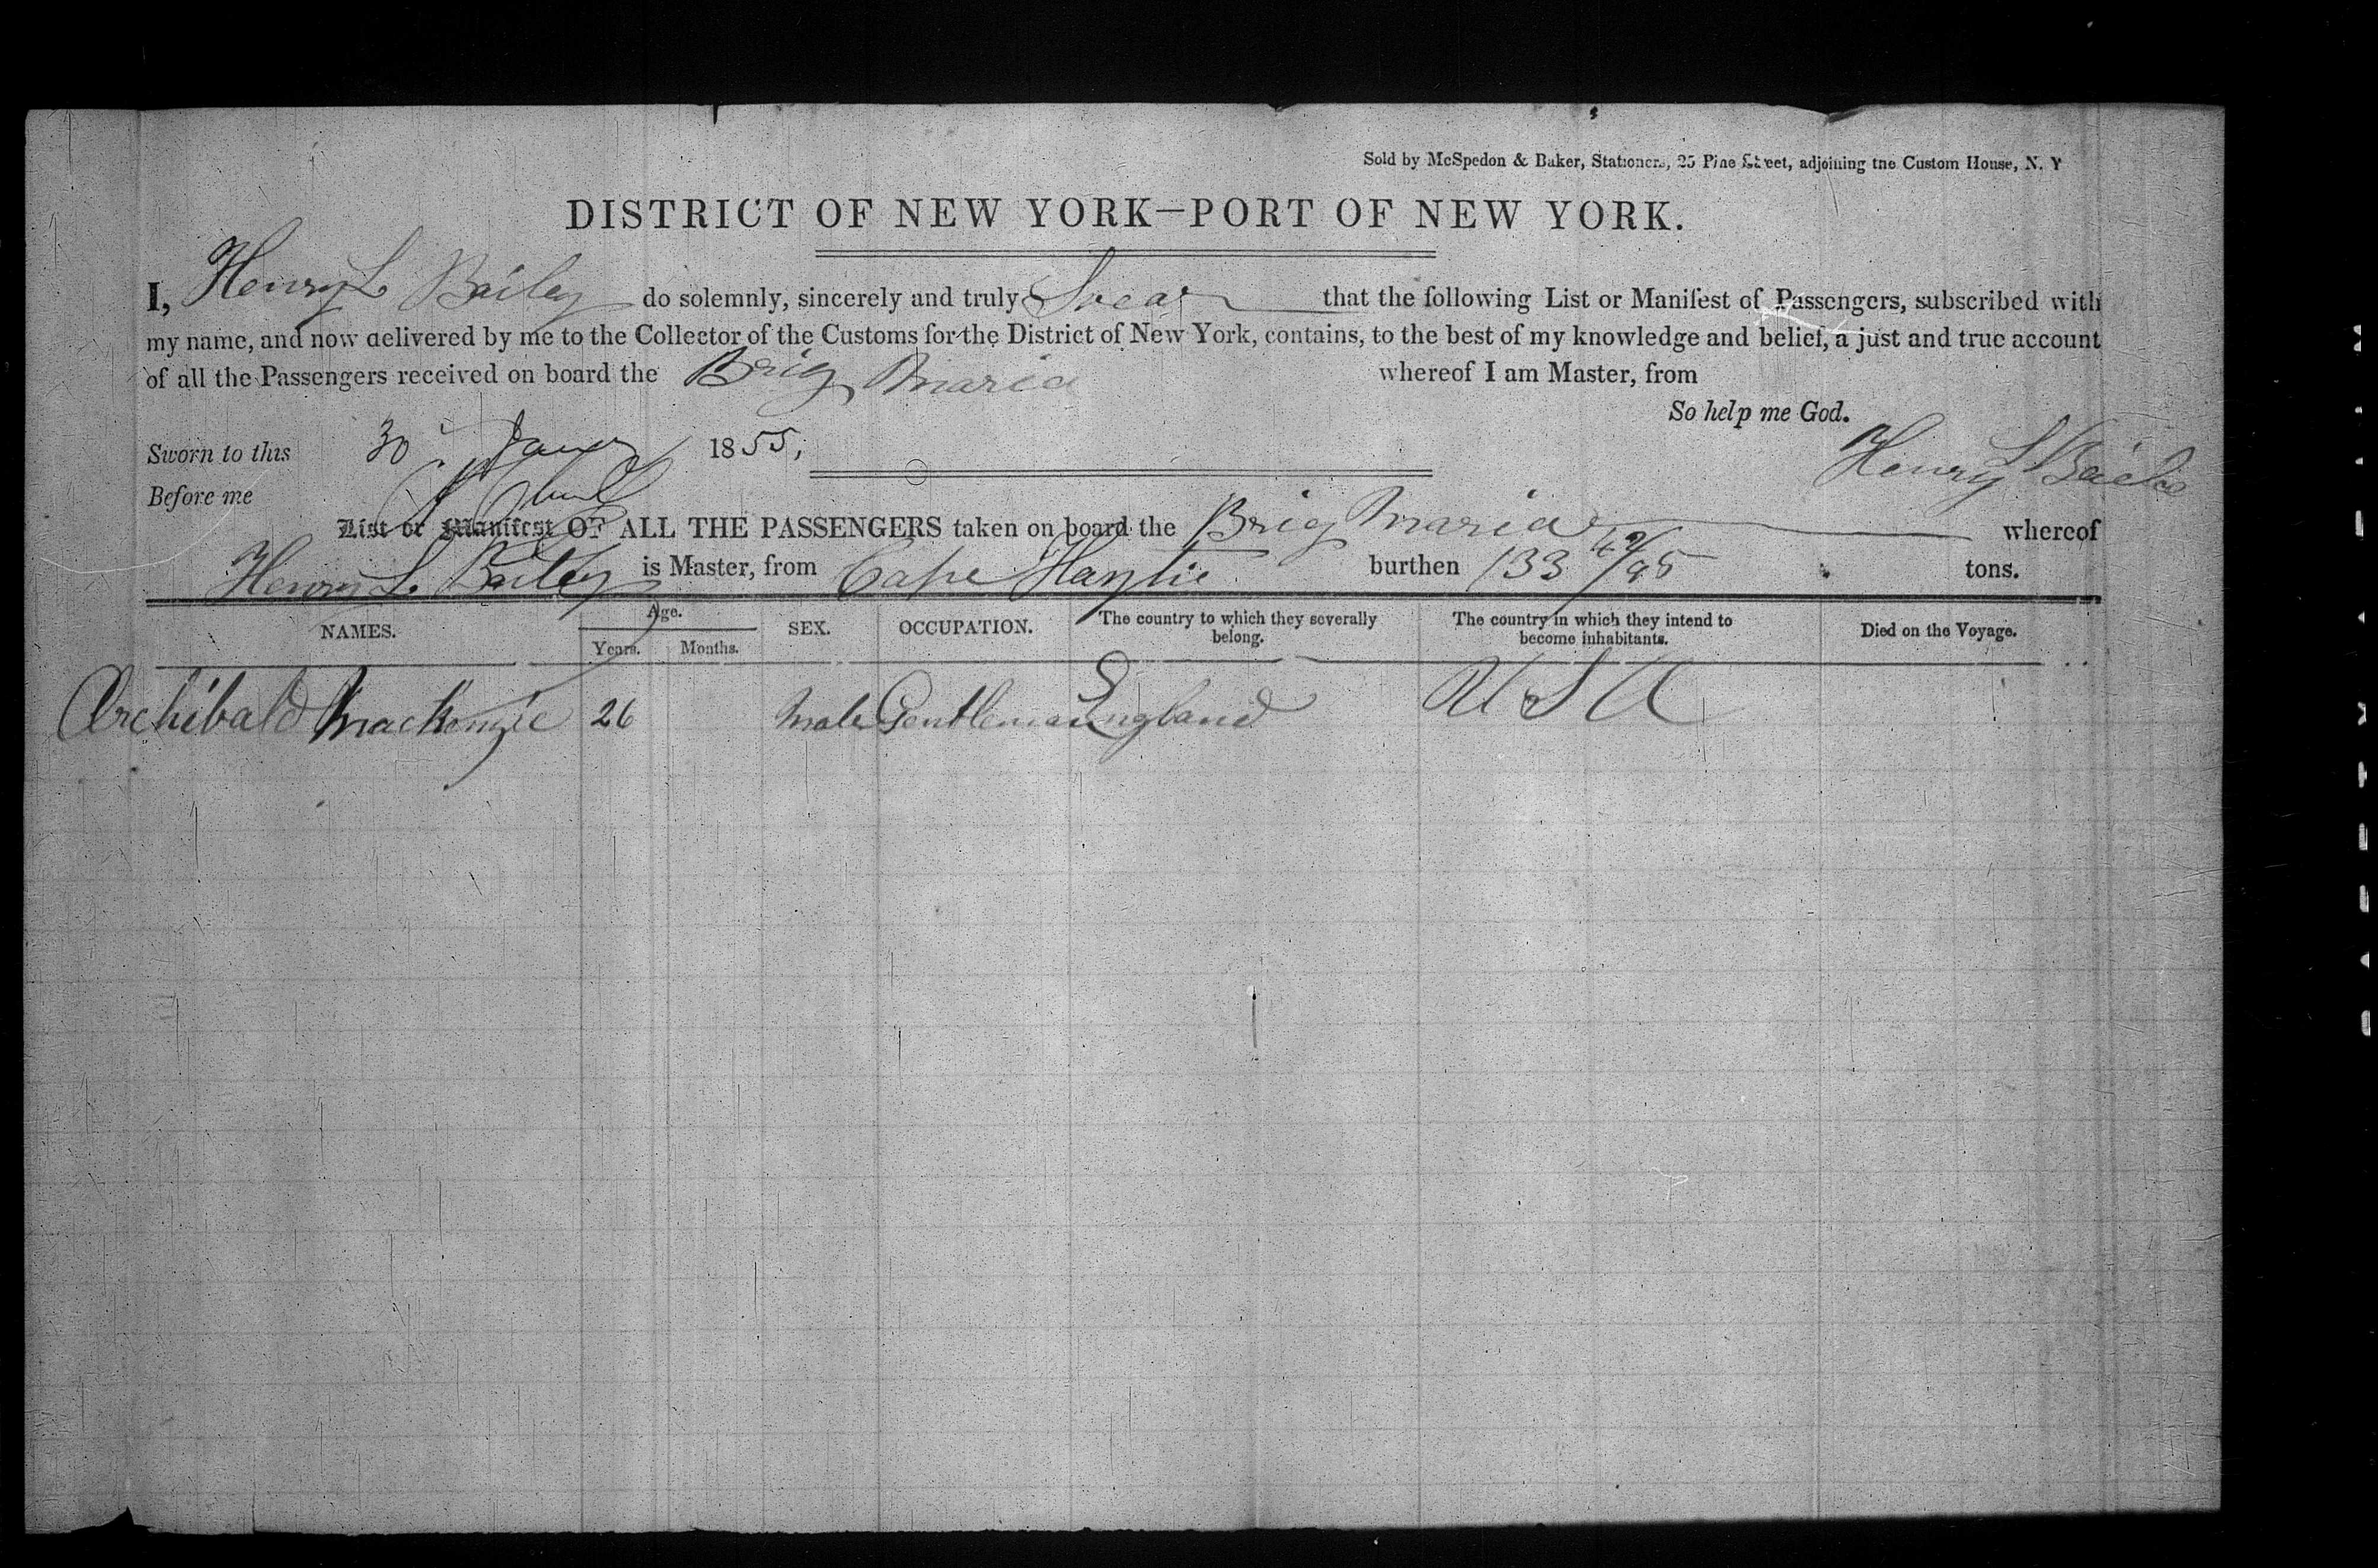 Sold by McSpedon & Baker, Stationers, 25 Pine Street, adjoining the Custom House, N. Y
DISTRICT OF NEW YORK—PORT OF NEW YORK.
I, Henry L Bailey do solemnly, sincerely and truly Swear that the following List or Manifest of Passengers, subscribed with
my name, and now delivered by me to the Collector of the Customs for the District of New York, contains, to the best of my knowledge and belief, a just and true account
of all the Passengers received on board the Brig Maria whereof I am Master, from
So help me God.
Sworn to this 30 Jany 1855,
Henry L Bailey
Before me
List or Manifest OF ALL THE PASSENGERS taken on board the Brig Maria whereof
Henry L. Bailey is Master, from Cape Haytie burthen 133 /95 tons.
NAMES. Age. Years. Months. SEX. OCCUPATION. The country to which they severally belong. The country in which they intend to become inhabitants. Died on the Voyage.
Archibald Mackenzie 26 Male Gentleman England U S A